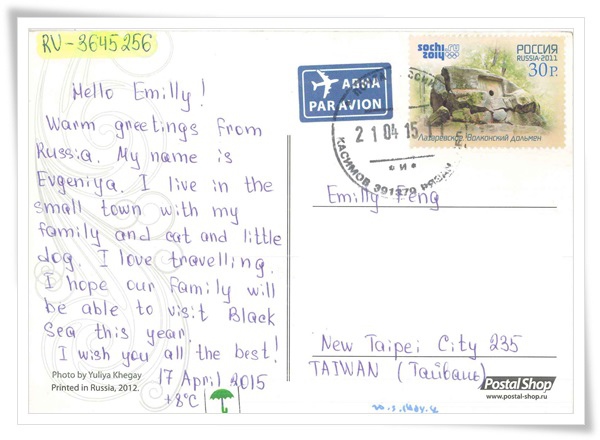 RU-3645256
Hello Emilly!
Warm greetings from
Russia. My name is
Evgeniya. I live in the
small town with my
family and cat and little
dog. I love travelling.
I hope our family will
be able to visit Black
Sea this year.
I wish you all the best!
17 April 2015
+8°C
Photo by Yuliya Khegay
Printed in Russia, 2012.
АВИА
PAR AVION
sochi.ru
2014
РОССИЯ
RUSSIA·2011
30 р.
Лазаревское. Волконский дольмен
21 04 15
КАСИМОВ 391379
и
Emilly Feng
New Taipei City 235
TAIWAN (Тайвань)
Postal Shop
www.postal-shop.ru